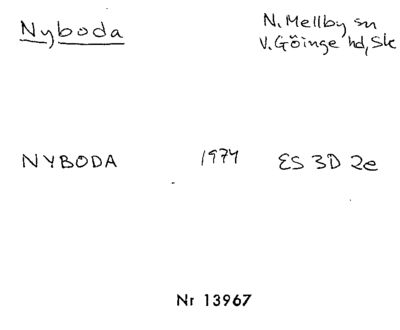 Nyboda
N. Mellby sn
V. Göinge hd, Sk
NYBODA 1974 ES 3D 2e
Nr 13967